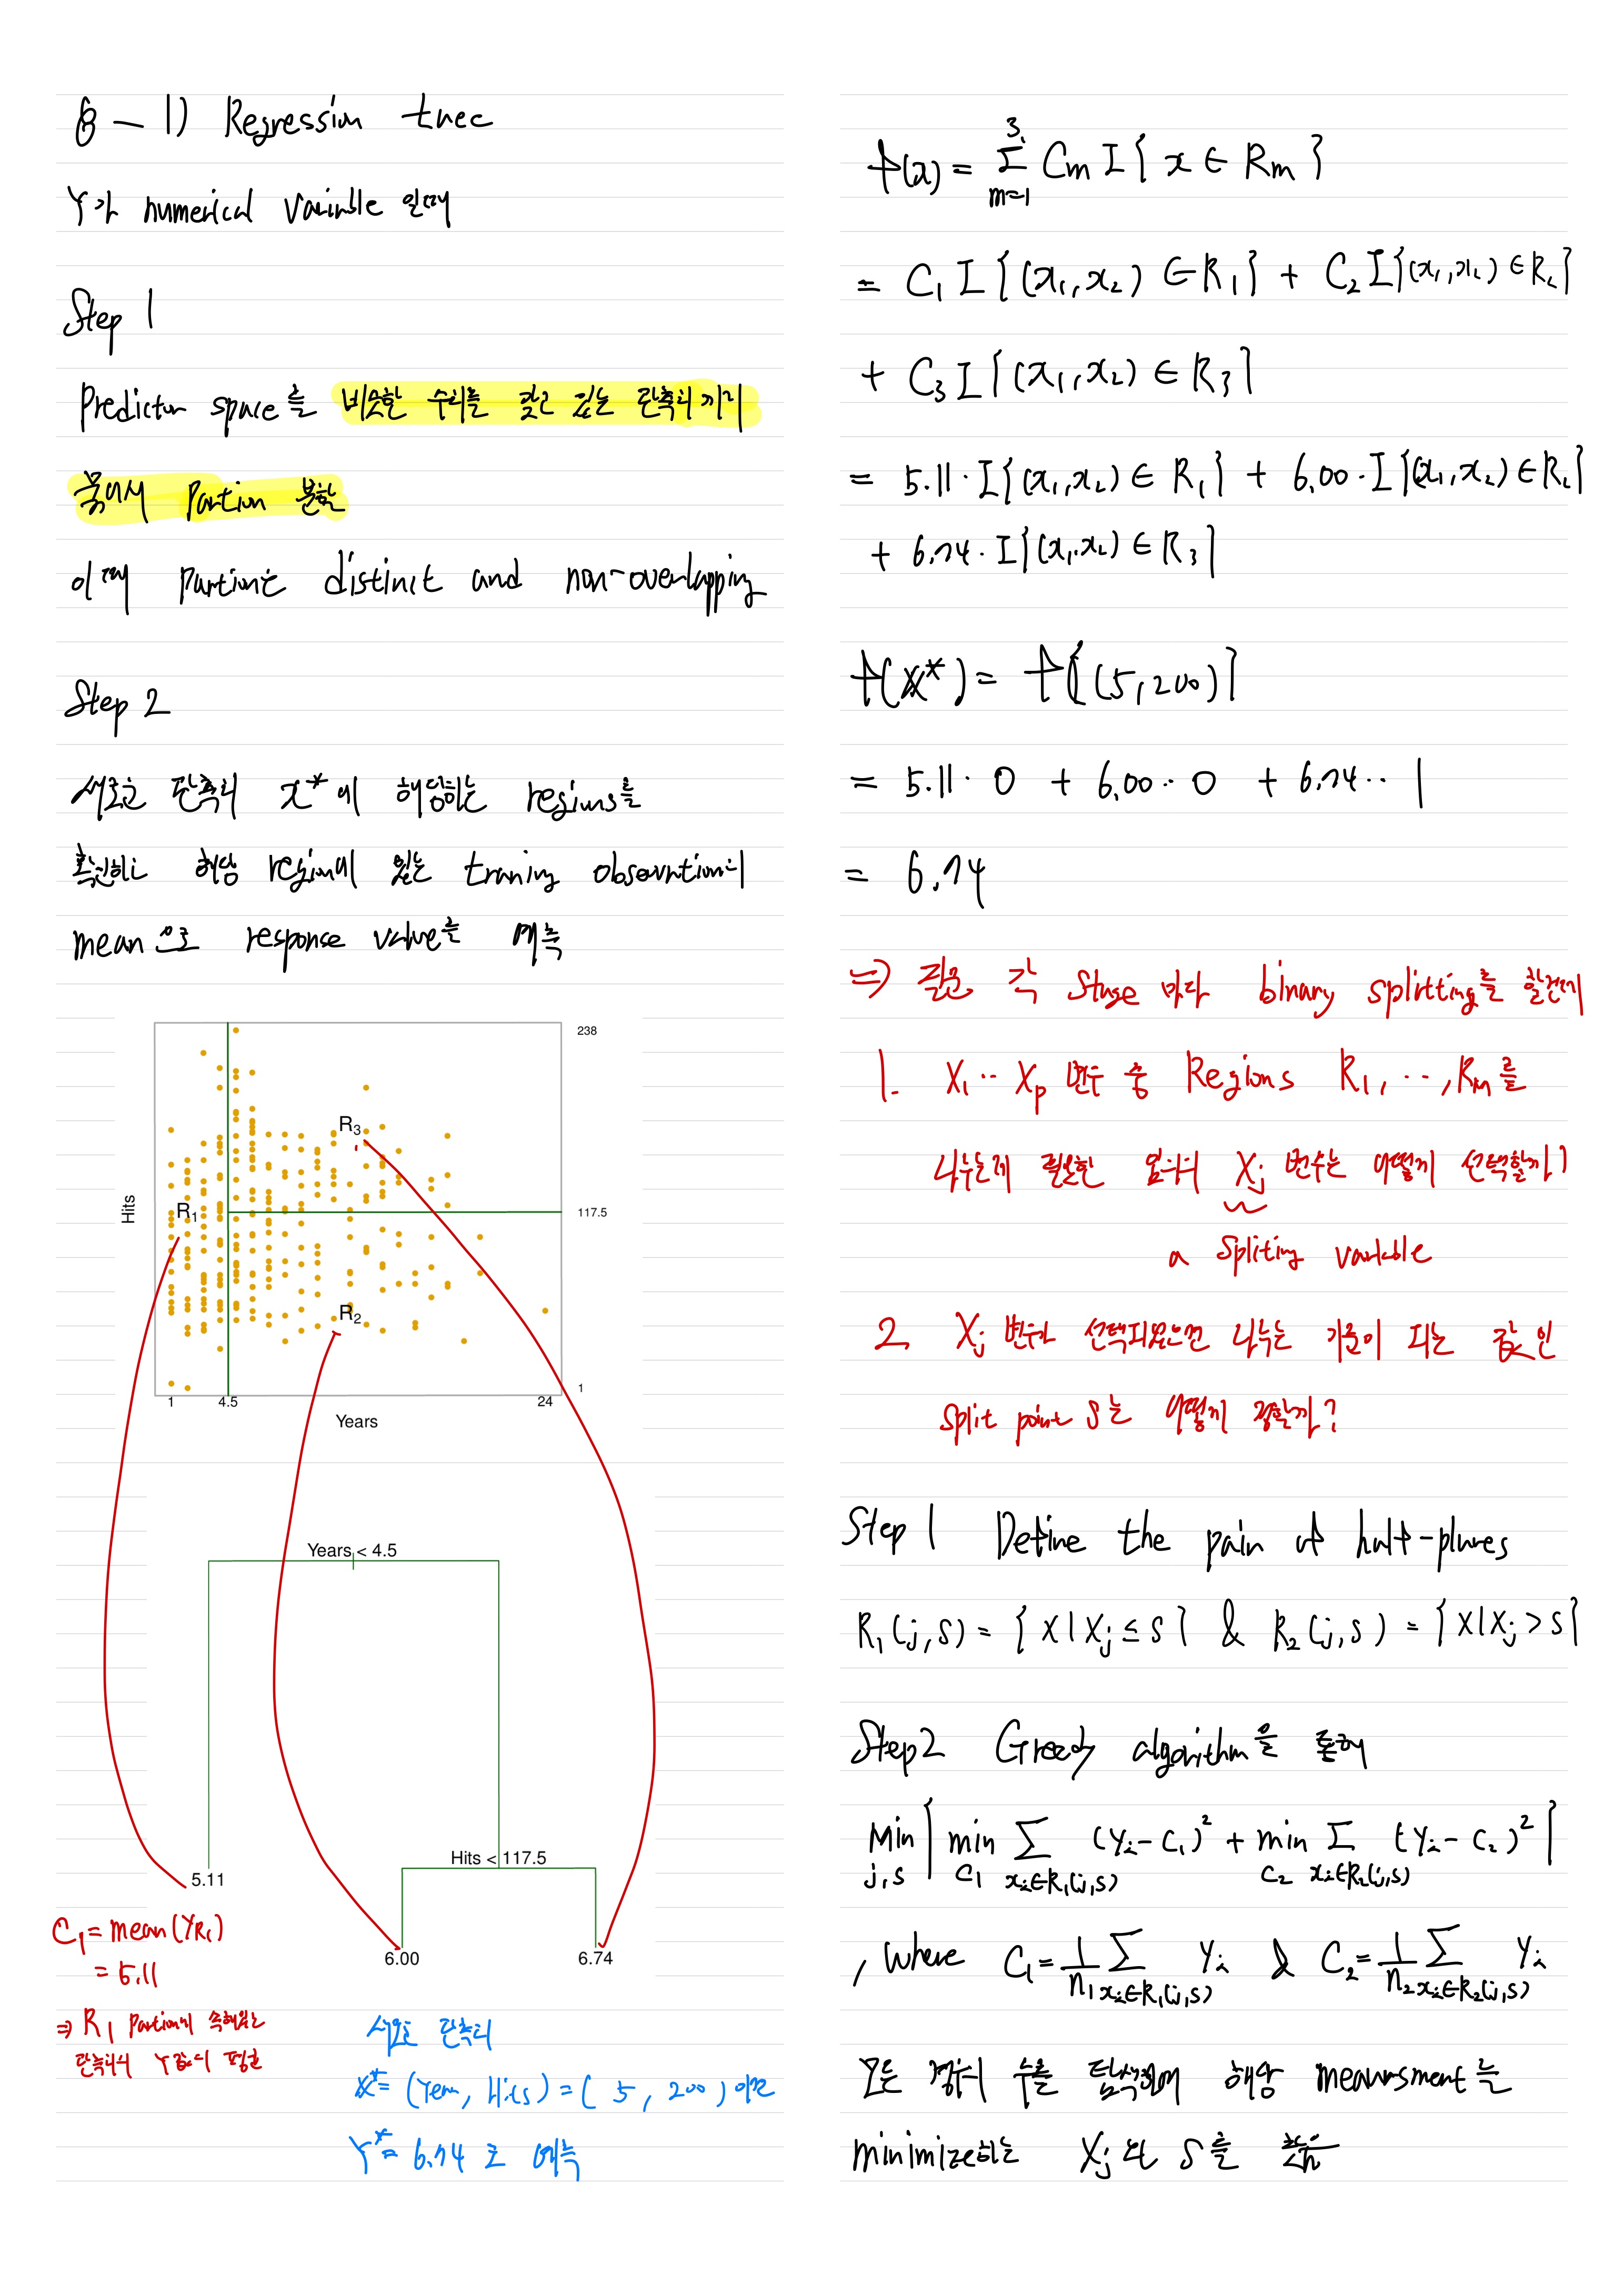 8-1) Regression tree
Y가 numerical variable 일때
Step 1
Predictor space를 비슷한 수치를 갖고 있는 관측치끼리
묶어서 Partion 분할
이때 Partion은 distinct and non-overlapping
Step 2
새로운 관측치 x* 에 해당하는 regions를
확인하고 해당 region에 있는 traning observation의
mean으로 response value를 예측
238
R3
Hits
R1
117.5
R2
1
1 4.5 24
Years
Years < 4.5
Hits < 117.5
5.11
C1 = mean(YR1)
= 5.11
6.00 6.74
⇒ R1 Partion에 속해있는
관측치의 Y값의 평균
새로운 관측치
X* = (Year, Hits) = (5, 200) 이면
Y* = 6.74 로 예측
f(x) = Σ_{m=1}^{3} Cm I{ x ∈ Rm }
= C1 I{(x1,x2) ∈ R1} + C2 I{(x1,x2) ∈ R2}
+ C3 I{(x1,x2) ∈ R3}
= 5.11 · I{(x1,x2) ∈ R1} + 6.00 · I{(x1,x2) ∈ R2}
+ 6.74 · I{(x1,x2) ∈ R3}
f(X*) = f{(5,200)}
= 5.11 · 0 + 6.00 · 0 + 6.74 · 1
= 6.74
⇒ 각 Stage 마다 binary splitting를 할건데
1. X1 ·· Xp 변수 중 Regions R1, ··, Rm를
나누는데 필요한 임의의 Xj 변수는 어떻게 선택할까?
a Spliting variable
2. Xj 변수가 선택되었으면 나누는 기준이 되는 값인
split point S는 어떻게 정할까?
Step 1 Define the pair of half-planes
R1(j,s) = {X|Xj ≤ s} & R2(j,s) = {X|Xj > s}
Step2 Greedy algorithm을 통해
Min_{j,s} [ min_{C1} Σ_{xi∈R1(j,s)} (yi - C1)² + min_{C2} Σ_{xi∈R2(j,s)} (yi - C2)² ]
, where C1 = 1/n1 Σ_{xi∈R1(j,s)} yi & C2 = 1/n2 Σ_{xi∈R2(j,s)} yi
모든 경우의 수를 탐색하며 해당 measurment를
minimize하는 Xj 와 S를 찾음